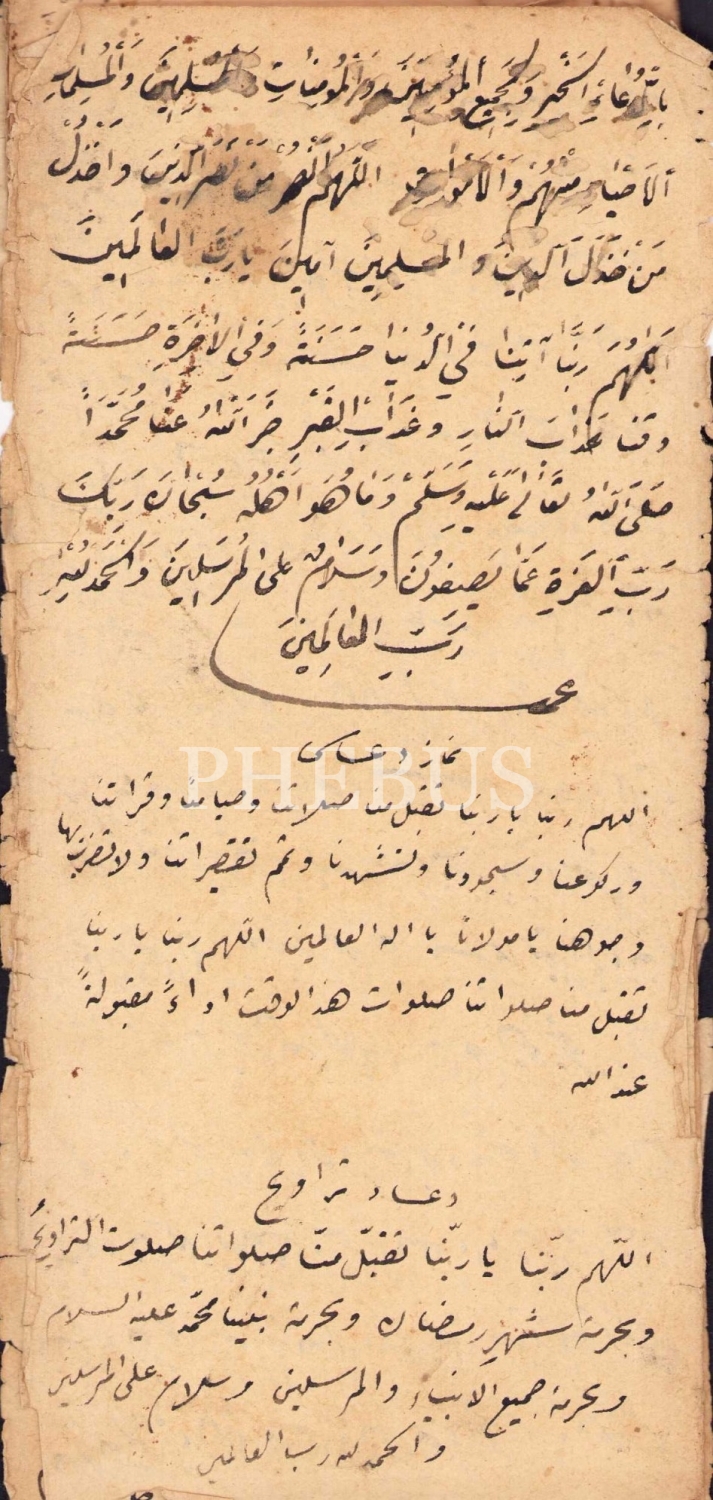 بِالدُّعَاءِ الْخَيْرِ وَلِجَمِيعِ الْمُؤْمِنِينَ وَالْمُؤْمِنَاتِ وَالْمُسْلِمِينَ وَالْمُسْلِمَاتِ
اَلْاَحْيَاءِ مِنْهُمْ وَالْاَمْوَاتِ اللّهُمَّ انْصُرْ مَنْ نَصَرَ الدِّينَ وَاخْذُلْ
مَنْ خَذَلَ الدِّينَ و المسلمِينَ آمِينَ يارَبَّ العَالَمِينَ
اَللّهُمَّ رَبَّنَا آتِنَا فِي الدُّنْيَا حَسَنَةً وَفِي الاخِرَةِ حَسَنَةً
وقنا عَذابَ النَّارِ وعَذَابَ القَبْرِ جَزَ اللهُ عَنَّا مُحَمَّدَاً
صَلَّى اللهُ تَعَالَى عَلَيْهِ وَسَلَّمْ وَمَا هُوَ اَهْلُهُ سُبْحَانَ رَبِّكَ
رَبِّ الْعِزَّةِ عَمَّا يَصِفُونَ وَسَلَامٌ على المُرْسَلِينَ وَالْحَمْدُ لِلّهِ
رَبِّ العَالَمِينَ
نماز دعاسى
اللهم ربنا يا ربنا تقبل منا صلاتنا وصيامنا وقراتنا
وركوعنا وسجودنا وتشهدنا وتمم تقصيراتنا ولا تضرب بها
وجوهنا يا مولانا يا اله العالمين اللهم ربنا يا ربنا
تقبل منا صلواتنا صلوات هذا الوقت اداءً مقبولةً
عند الله
دعاء تراويح
اللّهم ربّنا يا ربّنا تقبّل منّا صلواتنا صلوت التراويحُ
وبحرمة شهرِ رمضان وبحرمة نبينا محمّد عليه السلام
وبحرمة جميع الانبياء والمرسلين وسلام على المرسلين
والحمد لله رب العالمين
PHEBUS